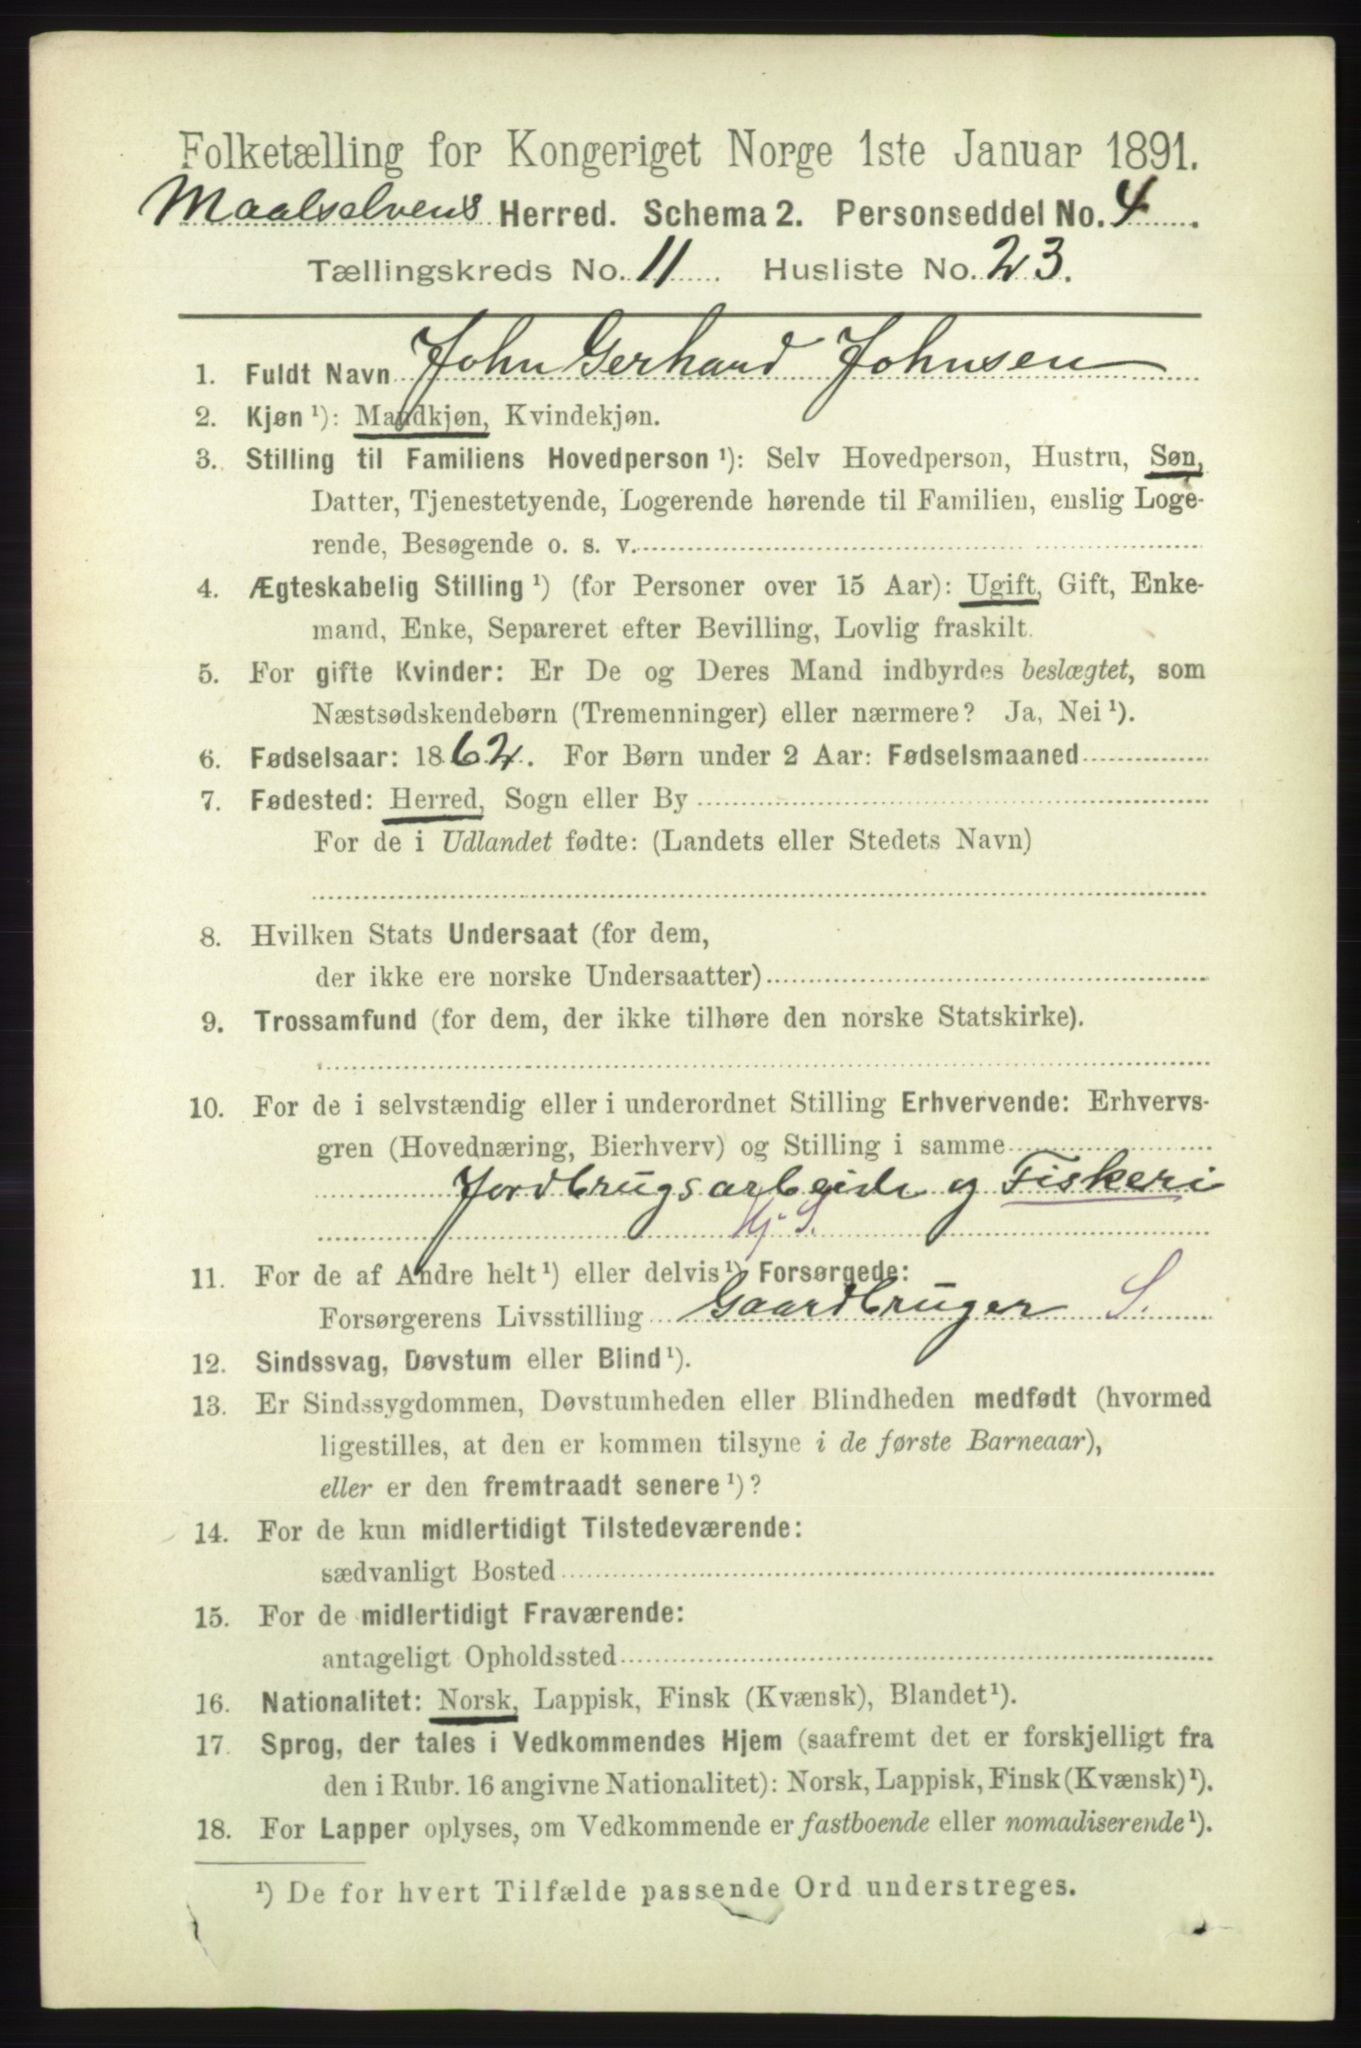 Folketælling for Kongeriget Norge 1ste Januar 1891.
Maalselvens Herred. Schema 2. Personseddel No. 4
Tællingskreds No. 11 Husliste No. 23.
1. Fuldt Navn John Gerhard Johnsen
2. Kjøn ¹): Mandkjøn, Kvindekjøn.
3. Stilling til Familiens Hovedperson ¹): Selv Hovedperson, Hustru, Søn,
Datter, Tjenestetyende, Logerende hørende til Familien, enslig Loge-
rende, Besøgende o. s. v.
4. Ægteskabelig Stilling ¹) (for Personer over 15 Aar): Ugift, Gift, Enke-
mand, Enke, Separeret efter Bevilling, Lovlig fraskilt.
5. For gifte Kvinder: Er De og Deres Mand indbyrdes beslægtet, som
Næstsødskendebørn (Tremenninger) eller nærmere? Ja, Nei ¹).
6. Fødselsaar: 1862. For Børn under 2 Aar: Fødselsmaaned
7. Fødested: Herred, Sogn eller By
For de i Udlandet fødte: (Landets eller Stedets Navn)
8. Hvilken Stats Undersaat (for dem,
der ikke ere norske Undersaatter)
9. Trossamfund (for dem, der ikke tilhøre den norske Statskirke).
10. For de i selvstændig eller i underordnet Stilling Erhvervende: Erhvervs-
gren (Hovednæring, Bierhverv) og Stilling i samme
Jordbrugsarbeide og Fiskeri
Hj. S.
11. For de af Andre helt ¹) eller delvis ¹) Forsørgede:
Forsørgerens Livsstilling Gaardbruger S.
12. Sindssvag, Døvstum eller Blind ¹).
13. Er Sindssygdommen, Døvstumheden eller Blindheden medfødt (hvormed
ligestilles, at den er kommen tilsyne i de første Barneaar),
eller er den fremtraadt senere ¹)?
14. For de kun midlertidigt Tilstedeværende:
sædvanligt Bosted
15. For de midlertidigt Fraværende:
antageligt Opholdssted
16. Nationalitet: Norsk, Lappisk, Finsk (Kvænsk), Blandet ¹).
17. Sprog, der tales i Vedkommendes Hjem (saafremt det er forskjelligt fra
den i Rubr. 16 angivne Nationalitet): Norsk, Lappisk, Finsk (Kvænsk) ¹).
18. For Lapper oplyses, om Vedkommende er fastboende eller nomadiserende ¹).
¹) De for hvert Tilfælde passende Ord understreges.